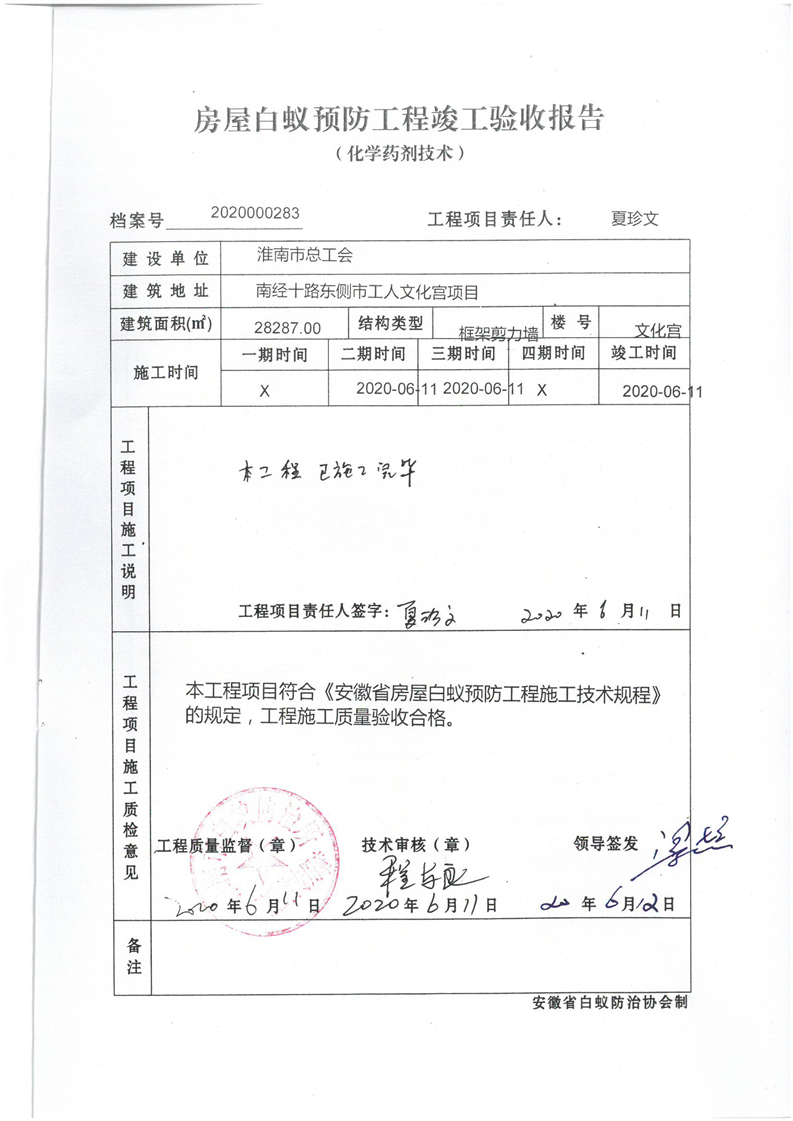 房屋白蚁预防工程竣工验收报告
（化学药剂技术）
档案号 2020000283 工程项目责任人： 夏珍文
建设单位 淮南市总工会
建筑地址 南经十路东侧市工人文化宫项目
建筑面积(㎡) 28287.00 结构类型 框架剪力墙 楼号 文化宫
施工时间 一期时间 二期时间 三期时间 四期时间 竣工时间
X 2020-06-11 2020-06-11 X 2020-06-11
工程项目施工说明
本工程已施工完毕
工程项目责任人签字：夏珍文 2020年6月11日
工程项目施工质检意见
本工程项目符合《安徽省房屋白蚁预防工程施工技术规程》
的规定，工程施工质量验收合格。
工程质量监督（章） 技术审核（章） 领导签发
2020年6月11日 2020年6月11日 20年6月12日
备注
安徽省白蚁防治协会制